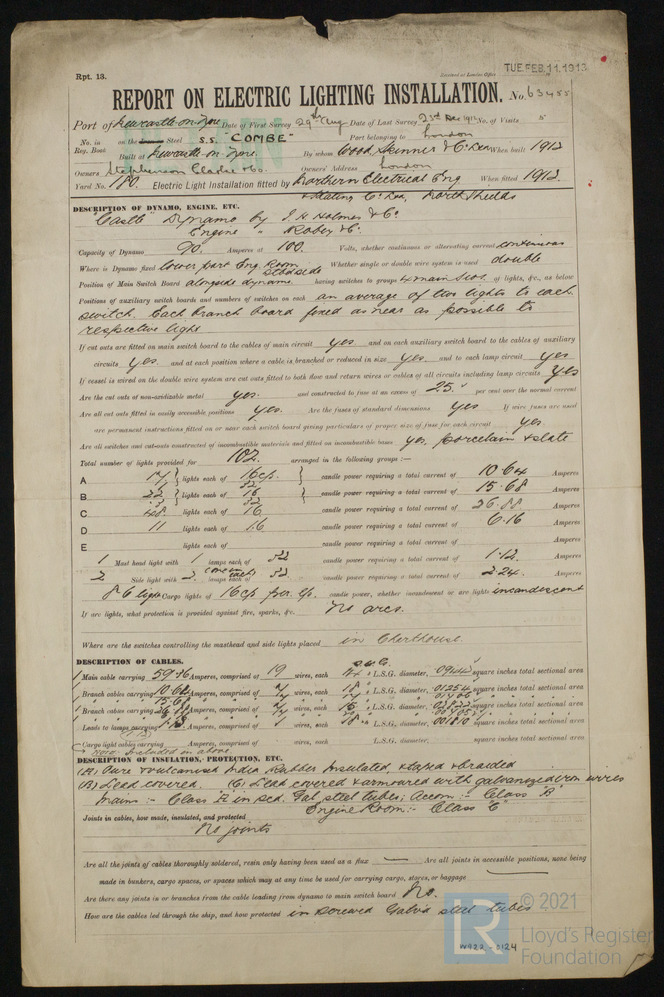 Rpt. 13.
Received at London Office
TUE. FEB. 11. 1913
REPORT ON ELECTRIC LIGHTING INSTALLATION. No. 63455
Port of Newcastle-on-Tyne Date of First Survey 29th Aug Date of Last Survey 23rd Dec 1912 No. of Visits 5
No. in Reg. Book on the Steel S.S. "COMBE" Port belonging to London
Built at Newcastle-on-Tyne By whom Wood, Skinner & Co Ltd When built 1912
Owners Stephenson Clarke & Co. Owners' Address London
Yard No. 180 Electric Light Installation fitted by Northern Electrical Eng When fitted 1912
& Co Ltd, North Shields
DESCRIPTION OF DYNAMO, ENGINE, ETC.
"Castle" Dynamo by J. H. Holmes & Co
Engine " Robey & Co.
Capacity of Dynamo 90 Amperes at 100 Volts, whether continuous or alternating current continuous
Where is Dynamo fixed lower part Eng. Room Starbd side Whether single or double wire system is used double
Position of Main Switch Board alongside dynamo having switches to groups 4 main of lights, &c., as below
Positions of auxiliary switch boards and numbers of switches on each an average of two lights to each
switch. Each branch board fixed as near as possible to
respective light
If cut outs are fitted on main switch board to the cables of main circuit yes and on each auxiliary switch board to the cables of auxiliary
circuits yes and at each position where a cable is branched or reduced in size yes and to each lamp circuit yes
If vessel is wired on the double wire system are cut outs fitted to both flow and return wires or cables of all circuits including lamp circuits yes
Are the cut outs of non-oxidizable metal yes. and constructed to fuse at an excess of 25 per cent over the normal current
Are all cut outs fitted in easily accessible positions yes. Are the fuses of standard dimensions yes If wire fuses are used
are permanent instructions fitted on or near each switch board giving particulars of proper size of fuse for each circuit yes
Are all switches and cut-outs constructed of incombustible materials and fitted on incombustible bases yes, porcelain & slate
Total number of lights provided for 102 arranged in the following groups :—
A 17 lights each of 16 cp. 32 candle power requiring a total current of 10.64 Amperes
B 22 lights each of 16 32 candle power requiring a total current of 15.68 Amperes
C 48 lights each of 16 candle power requiring a total current of 26.88 Amperes
D 11 lights each of 16 candle power requiring a total current of 6.16 Amperes
E lights each of candle power requiring a total current of Amperes
1 Mast head light with 1 lamps each of 32 candle power requiring a total current of 1.12 Amperes
2 Side light with 2 lamps each of 32 candle power requiring a total current of 2.24 Amperes
8 6 light Cargo lights of 16 cp per lp. candle power, whether incandescent or arc lights incandescent
If arc lights, what protection is provided against fire, sparks, &c. No arcs.
Where are the switches controlling the masthead and side lights placed in Charthouse.
DESCRIPTION OF CABLES. S.W.G.
1 Main cable carrying 59.36 Amperes, comprised of 19 wires, each 14 L.S.G. diameter, .0944 square inches total sectional area
1 Branch cables carrying 10.62 Amperes, comprised of 7 wires, each 18 L.S.G. diameter, .01254 square inches total sectional area
1 Branch cables carrying 26.88 Amperes, comprised of 7 wires, each 16 L.S.G. diameter, .02227 square inches total sectional area
1 Leads to lamps carrying 1.12 Amperes, comprised of 1 wires, each 18 L.S.G. diameter, .001810 square inches total sectional area
Cargo light cables carrying Amperes, comprised of wires, each L.S.G. diameter, square inches total sectional area
Note: Included in above
DESCRIPTION OF INSULATION, PROTECTION, ETC.
(A) Pure & vulcanised India Rubber Insulated, taped & braided
(B) Lead covered. (C) Lead covered & armoured with galvanized iron wires
Mains :- Class "A" in scd. Gal. steel tubes; Accom :- Class "B"
Engine Room :- Class "C"
Joints in cables, how made, insulated, and protected
No joints
Are all the joints of cables thoroughly soldered, resin only having been used as a flux — Are all joints in accessible positions, none being
made in bunkers, cargo spaces, or spaces which may at any time be used for carrying cargo, stores, or baggage —
Are there any joints in or branches from the cable leading from dynamo to main switch board No.
How are the cables led through the ship, and how protected in screwed Galv'd steel tubes
W922-0124
LR
© 2021
Lloyd's Register
Foundation